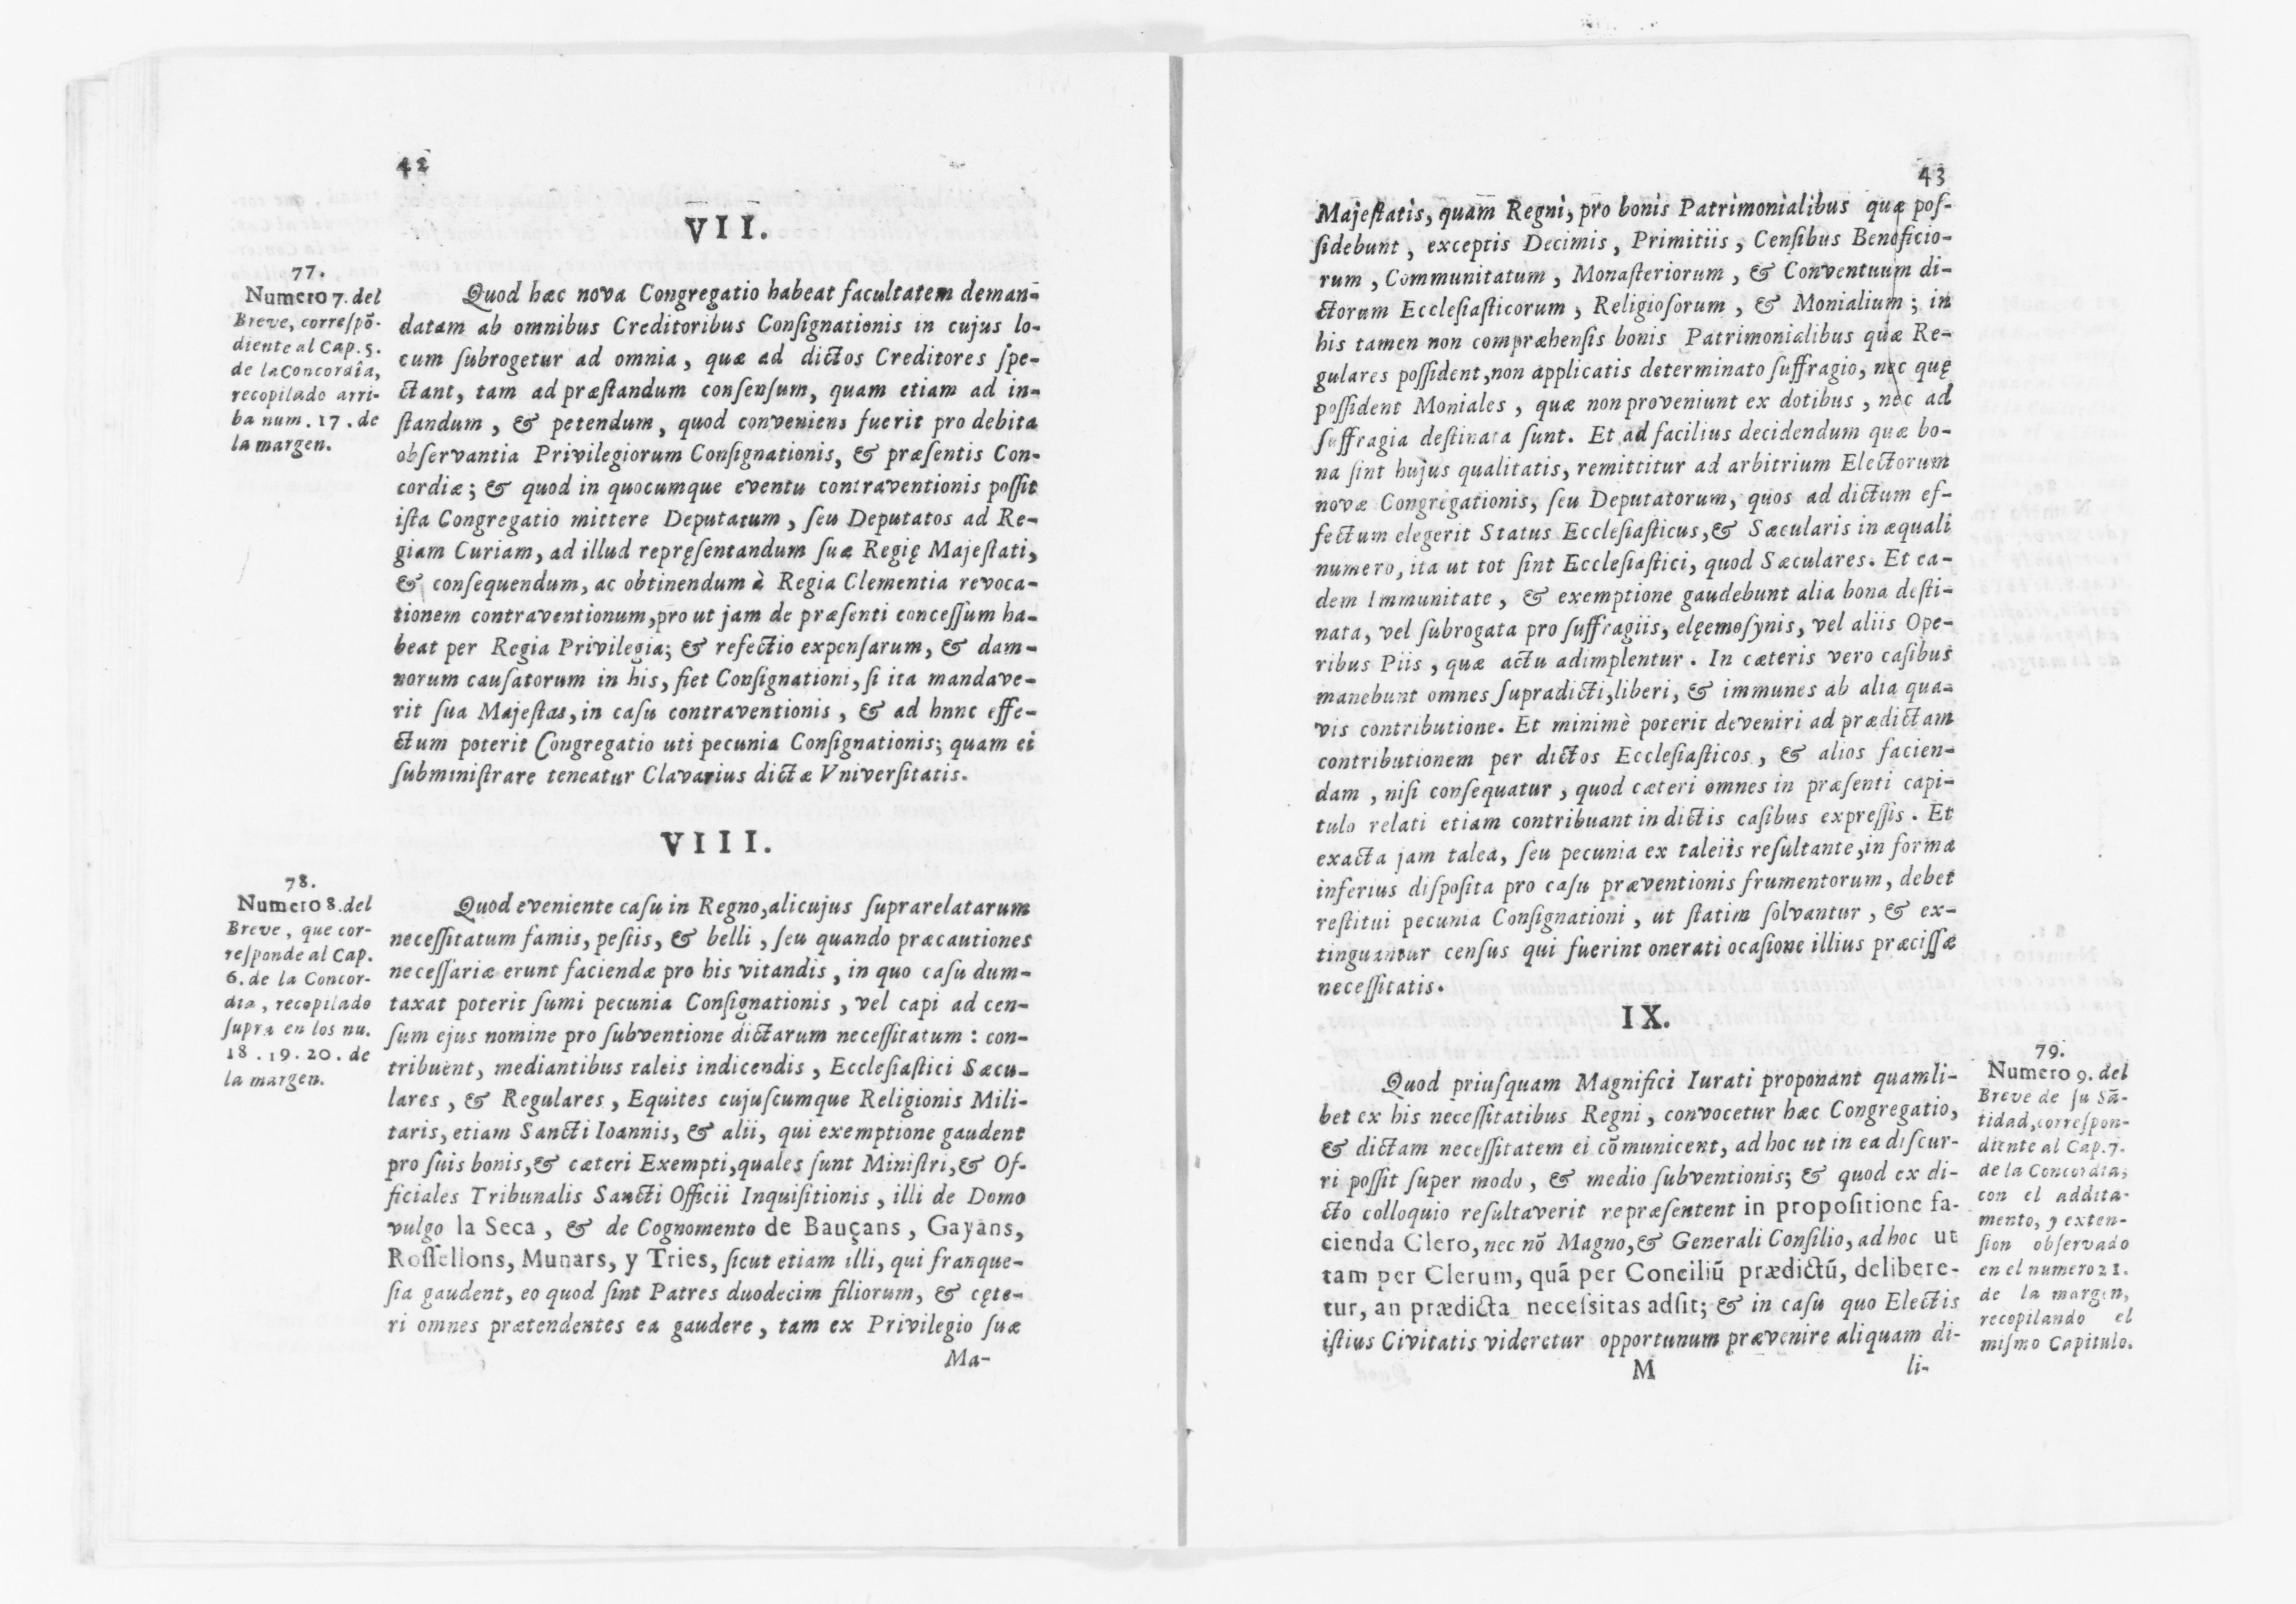 42
VII.
77.
Numero 7. del
Breve, correſpõ-
diente al Cap. 5.
de la Concordia,
recopilado arri-
ba num. 17. de
la margen.
Quod hæc nova Congregatio habeat facultatem deman-
datam ab omnibus Creditoribus Conſignationis in cujus lo-
cum ſubrogetur ad omnia, quæ ad dictos Creditores ſpe-
ctant, tam ad præſtandum conſenſum, quam etiam ad in-
ſtandum, & petendum, quod conveniens fuerit pro debita
obſervantia Privilegiorum Conſignationis, & præſentis Con-
cordiæ; & quod in quocumque eventu contraventionis poſſit
iſta Congregatio mittere Deputatum, ſeu Deputatos ad Re-
giam Curiam, ad illud repręſentandum ſuæ Regię Majeſtati,
& conſequendum, ac obtinendum à Regia Clementia revoca-
tionem contraventionum, pro ut jam de præſenti conceſſum ha-
beat per Regia Privilegia; & refectio expenſarum, & dam-
norum cauſatorum in his, fiet Conſignationi, ſi ita mandave-
rit ſua Majeſtas, in caſu contraventionis, & ad hnnc effe-
ctum poterit Congregatio uti pecunia Conſignationis; quam ei
ſubminiſtrare teneatur Clavarius dictæ Vniverſitatis.
VIII.
78.
Numero 8. del
Breve, que cor-
reſponde al Cap.
6. de la Concor-
dia, recopilado
ſupra en los nu.
18. 19. 20. de
la margen.
Quod eveniente caſu in Regno, alicujus ſuprarelatarum
neceſſitatum famis, peſtis, & belli, ſeu quando præcautiones
neceſſariæ erunt faciendæ pro his vitandis, in quo caſu dum-
taxat poterit ſumi pecunia Conſignationis, vel capi ad cen-
ſum ejus nomine pro ſubventione dictarum neceſſitatum: con-
tribuent, mediantibus taleis indicendis, Eccleſiaſtici Sæcu-
lares, & Regulares, Equites cujuſcumque Religionis Mili-
taris, etiam Sancti Ioannis, & alii, qui exemptione gaudent
pro ſuis bonis, & cæteri Exempti, quales ſunt Miniſtri, & Of-
ficiales Tribunalis Sancti Officii Inquiſitionis, illi de Domo
vulgo la Seca, & de Cognomento de Bauçans, Gayàns,
Roſſellons, Munars, y Tries, ſicut etiam illi, qui franque-
ſia gaudent, eo quod ſint Patres duodecim filiorum, & cęte-
ri omnes prætendentes ea gaudere, tam ex Privilegio ſuæ
Ma-
43
Majeſtatis, quam Regni, pro bonis Patrimonialibus quæ poſ-
ſidebunt, exceptis Decimis, Primitiis, Cenſibus Beneficio-
rum, Communitatum, Monaſteriorum, & Conventuum di-
ctorum Eccleſiaſticorum, Religioſorum, & Monialium; in
his tamen non compræhenſis bonis Patrimonialibus quæ Re-
gulares poſſident, non applicatis determinato ſuffragio, nec quę
poſſident Moniales, quæ non proveniunt ex dotibus, nec ad
ſuffragia deſtinata ſunt. Et ad facilius decidendum quæ bo-
na ſint hujus qualitatis, remittitur ad arbitrium Electorum
novæ Congregationis, ſeu Deputatorum, quos ad dictum ef-
fectum elegerit Status Eccleſiaſticus, & Sæcularis in æquali
numero, ita ut tot ſint Eccleſiaſtici, quod Sæculares. Et ea-
dem Immunitate, & exemptione gaudebunt alia bona deſti-
nata, vel ſubrogata pro ſuffragiis, elęemoſynis, vel aliis Ope-
ribus Piis, quæ actu adimplentur. In cæteris vero caſibus
manebunt omnes ſupradicti, liberi, & immunes ab alia qua-
vis contributione. Et minimè poterit deveniri ad prædictam
contributionem per dictos Eccleſiaſticos, & alios facien-
dam, niſi conſequatur, quod cæteri omnes in præſenti capi-
tulo relati etiam contribuant in dictis caſibus expreſſis. Et
exacta jam talea, ſeu pecunia ex taleiis reſultante, in forma
inferius diſpoſita pro caſu præventionis frumentorum, debet
reſtitui pecunia Conſignationi, ut ſtatim ſolvantur, & ex-
tinguantur cenſus qui fuerint onerati ocaſione illius præciſſæ
neceſſitatis.
IX.
79.
Numero 9. del
Breve de ſu Sã-
tidad, correſpon-
diente al Cap. 7.
de la Concordia,
con el addita-
mento, y exten-
ſion obſervado
en el numero 21.
de la margen,
recopilando el
miſmo Capitulo.
Quod priuſquam Magnifici Iurati proponant quamli-
bet ex his neceſſitatibus Regni, convocetur hæc Congregatio,
& dictam neceſſitatem ei cõmunicent, ad hoc ut in ea diſcur-
ri poſſit ſuper modo, & medio ſubventionis; & quod ex di-
cto colloquio reſultaverit repræſentent in propoſitione fa-
cienda Clero, nec nõ Magno, & Generali Conſilio, ad hoc ut
tam per Clerum, quã per Conciliũ prædictũ, delibere-
tur, an prædicta neceſsitas adſit; & in caſu quo Electis
iſtius Civitatis videretur opportunum prævenire aliquam di-
M
li-